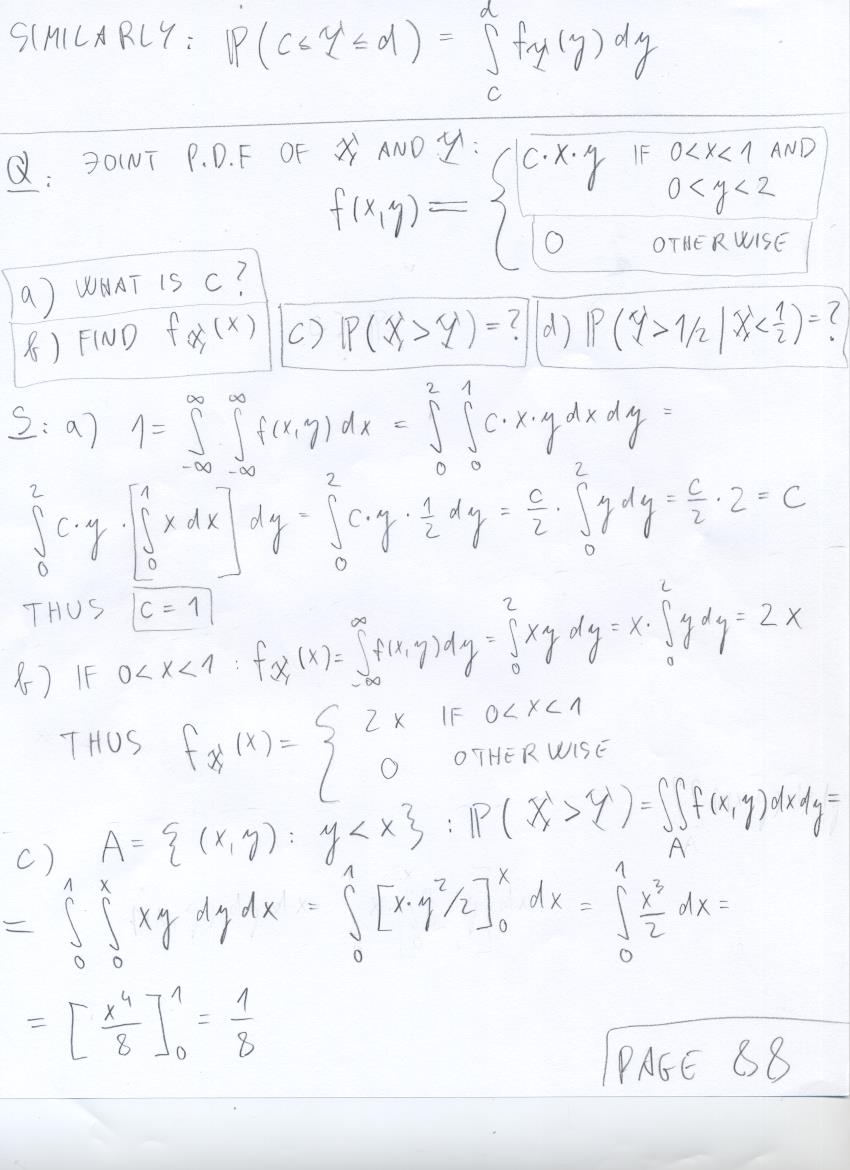 SIMILARLY: ℙ(C≤Y≤d) = ∫_c^d f_Y(y) dy
Q: JOINT P.D.F OF X AND Y:
f(x,y) = { C·x·y IF 0<x<1 AND 0<y<2
0 OTHERWISE
a) WHAT IS C?
b) FIND f_X(x) c) ℙ(X>Y)=? d) ℙ(Y>1/2 | X<1/2)=?
S: a) 1 = ∫_{-∞}^{∞} ∫_{-∞}^{∞} f(x,y) dx = ∫_0^2 ∫_0^1 C·x·y dx dy =
∫_0^2 C·y·[∫_0^1 x dx] dy = ∫_0^2 C·y·1/2 dy = C/2 · ∫_0^2 y dy = C/2 · 2 = C
THUS C = 1
b) IF 0<x<1 : f_X(x) = ∫_{-∞}^{∞} f(x,y) dy = ∫_0^2 xy dy = x·∫_0^2 y dy = 2x
THUS f_X(x) = { 2x IF 0<x<1
0 OTHERWISE
c) A = {(x,y): y<x} : ℙ(X>Y) = ∬_A f(x,y) dx dy =
= ∫_0^1 ∫_0^x xy dy dx = ∫_0^1 [x·y²/2]_0^x dx = ∫_0^1 x³/2 dx =
= [x⁴/8]_0^1 = 1/8
PAGE 88